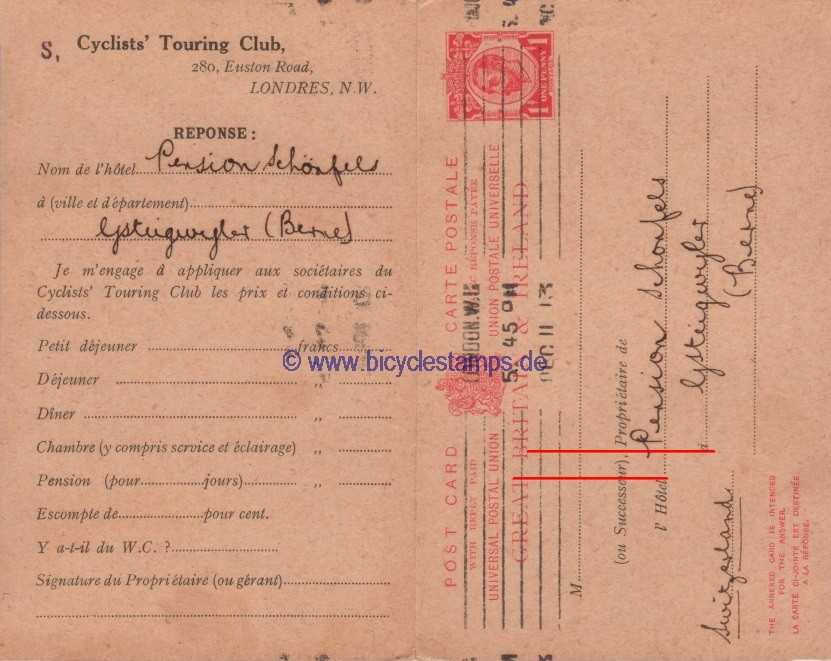 S. Cyclists' Touring Club,
280, Euston Road,
LONDRES, N.W.
REPONSE :
Nom de l'hôtel Pension Schönfels
à (ville et d'épartement)
Gsteigwyler (Berne)
Je m'engage à appliquer aux sociétaires du
Cyclists' Touring Club les prix et conditions ci-
dessous.
Petit déjeuner francs
Déjeuner ,,
Dîner ,,
Chambre (y compris service et éclairage) ,,
Pension (pour jours) ,,
Escompte de pour cent.
Y a-t-il du W.C. ?
Signature du Propriétaire (ou gérant)
© www.bicyclestamps.de
ONE PENNY
POST CARD CARTE POSTALE
WITH REPLY PAID AVEC RÉPONSE PAYÉE
UNIVERSAL POSTAL UNION UNION POSTALE UNIVERSELLE
GREAT BRITAIN & IRELAND
LONDON.W.C
5. 45 PM
DEC 11 13
M
(ou Successeur), Propriétaire de
l'Hôtel Pension Schönfels
à Gsteigwyler
(Berne)
Switzerland
THE ANNEXED CARD IS INTENDED
FOR THE ANSWER.
LA CARTE CI-JOINTE EST DESTINÉE
A LA RÉPONSE.